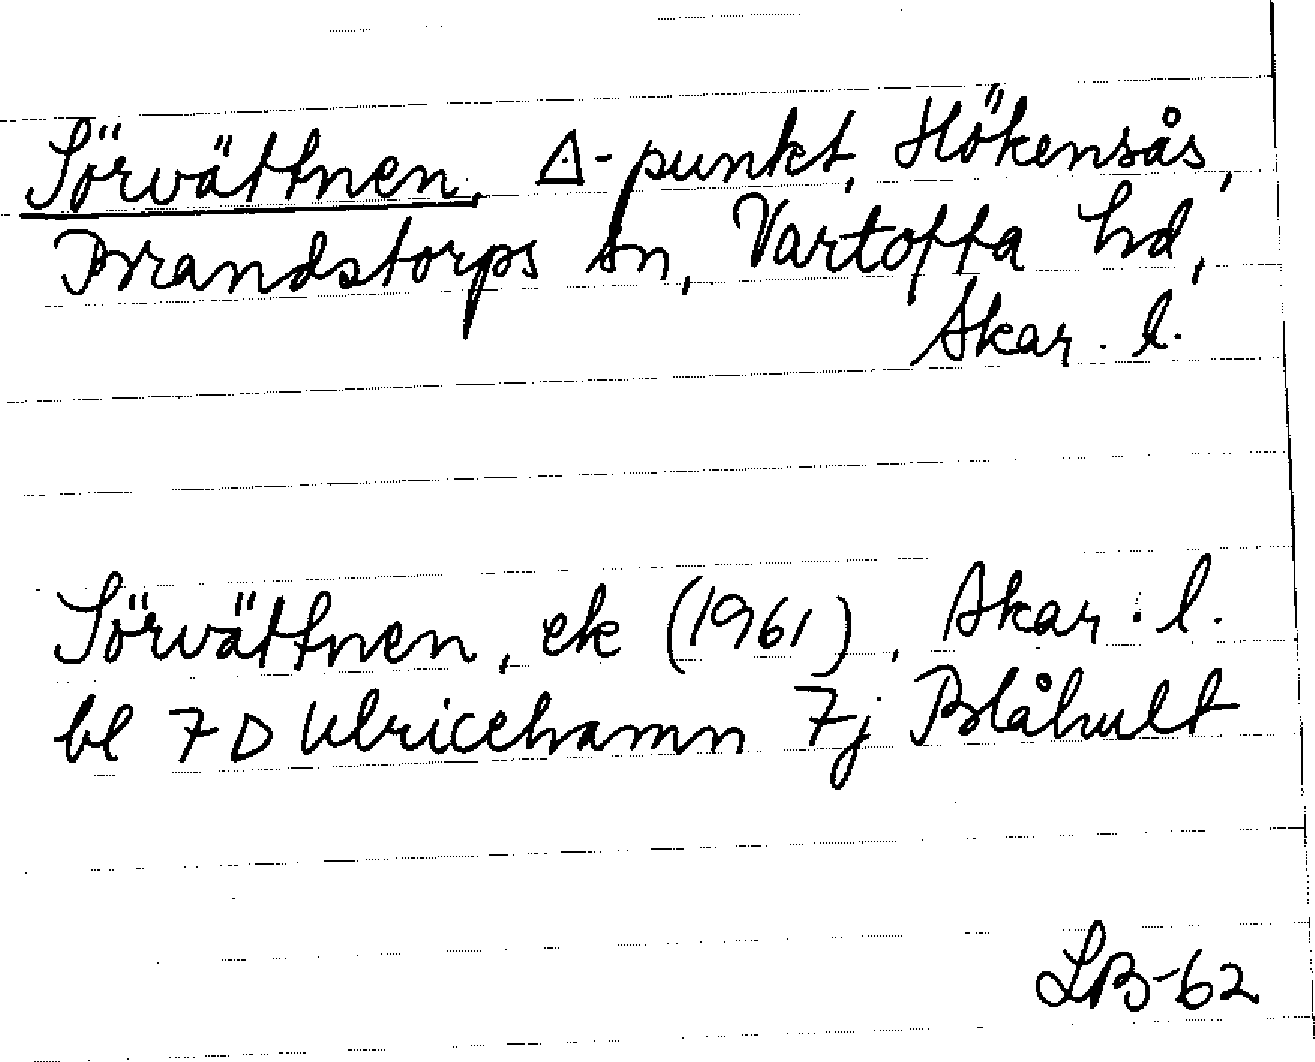 Sörvättnen, Δ-punkt, Hökensås,
Brandstorps sn, Vartofta hd,
Skar. l.
Sörvättnen, ek (1961), Skar. l.
bl 7 D Ulricehamn 7j Blåhult
LB-62